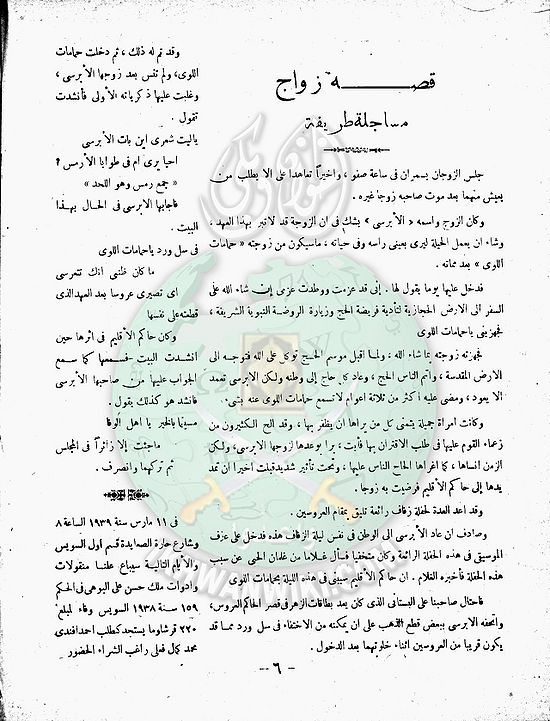 قصة زواج
مساجلة طريفة
جلس الزوجان يسمران فى ساعة صفو ، واخيراً تعاهدا على الا يطلب من
يعيش منهما بعد موت صاحبه زوجا غيره .
وكان الزوج واسمه « الأبرسى » يشك فى ان الزوجة قد لا تبر بهذا العهد ،
وشاء ان يعمل الحيلة ليرى بعينى راسه وفى حياته ، ماسيكون من زوجته « حمامات
اللوى » بعد مماته .
فدخل عليها يوما يقول لها . إنى قد عزمت ووطدت عزمى إن شاء الله على
السفر الى الارض الحجازية لتأدية فريضة الحج وزيارة الروضة النبوية الشريفة ،
فجهزينى ياحمامات اللوى
فجهزته زوجته بما شاء الله ، ولما اقبل موسم الحج توكل على الله فتوجه الى
الارض المقدسة ، واتم الناس الحج ، وعاد كل حاج إلى وطنه ولكن الابرسى تعمد
الا يعود ، ومضى عليه أكثر من ثلاثة اعوام لاتسمع حمامات اللوى عنه بشىء
وكانت امراة جميلة يتمنى كل من يراها ان يظفر بها ، وقد الح الكثيرون من
زعماء القوم عليها فى طلب الاقتران بها فأبت ، برا بوعدها لزوجها الابرسى ، ولكن
الزمن انساها ، كما اغراها الحاح الناس عليها ، وتحت تأثير شديد قبلت اخيرا ان تمد
يدها إلى حاكم الأقليم فرضيت به زوجا .
وقد اعد العدة لحفلة زفاف رائعة تليق بمقام العروسين .
وصادف ان عاد الأبرسى الى الوطن فى نفس ليلة الزفاف هذه فدخل على عزف
الموسيقى فى هذه الحفلة الرائعة وكان متخفيا فسأل غلاما من غلمان الحى عن سبب
هذه الحفلة فأخبره الغلام . ان حاكم الأقليم سيبنى فى هذه الليلة بحمامات اللوى
فاحتال صاحبنا على البستانى الذى كان يعد بطاقات الزهر فى قصر الحاكم العروس ،
واتحفه الابرسى ببعض قطع الذهب على ان يمكنه من الاختفاء فى سل ورد مما قد
يكون قريبا من العروسين اثناء خلوتهما بعد الدخول .
وقد تم له ذلك ، ثم دخلت حمامات
اللوى ، ولم تنس بعد زوجها الأبرسى ،
وغلبت عليها ذكرياته الأولى فأنشدت
تقول .
ياليت شعرى اين بات الأبرسى
احيا يرى ام فى طوايا الأرمس ؟
« جمع رمس وهو اللحد »
فاجابها الابرسى فى الحال بهذا
البيت .
فى سل ورد ياحمامات اللوى
ما كان ظنى انك تتعرسى
اى تصيرى عروسا بعد العهد الذى
قطعته على نفسها
وكان حاكم الأقليم فى اثرها حين
انشدت البيت فسمعها كما سمع
الجواب عليها من صاحبها الأبرسى
فانشد هو كذلك يقول .
مسيتما بالخير يا اهل الوفا
ماجئت إلا زائراً فى المجلس
ثم تركهما وانصرف .
فى ١١ مارس سنة ١٩٣٩ الساعة ٨
وشارع حارة الصعايدة قسم اول السويس
والأيام التالية سيباع علنا منقولات
وادوات ملك حسن على البوهى فى الحكم
١٥٩ سنة ١٩٣٨ السويس وفاء لمبلغ
٢٢٠ قرشا وما يستجد كطلب احمد افندى
محمد كمال فعلى راغب الشراء الحضور
- ٦ -